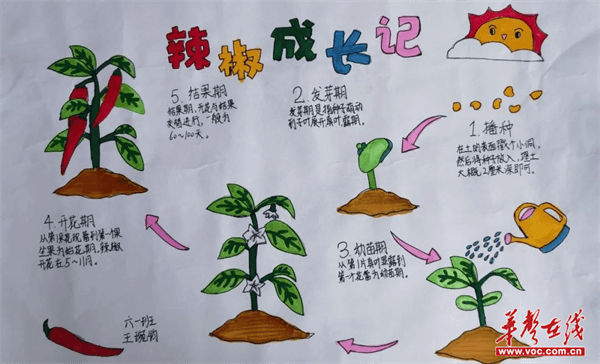 辣椒成长记
1.播种
在土的表面戳个小洞,
然后将种子放入,埋土
大概2厘米深即可。
2.发芽期
发芽期是指种子萌动
到子叶展开真叶显露期。
3.幼苗期
从第1片真叶显露到
第一个花蕾为幼苗期。
4.开花期
从第1朵花现蕾到第一个果
坐果为始花期,辣椒
开花在5~11月。
5.结果期
结果期,开花与结果
交替进行,一般为
60~100天。
六一班
华声在线
www.voc.com.cn